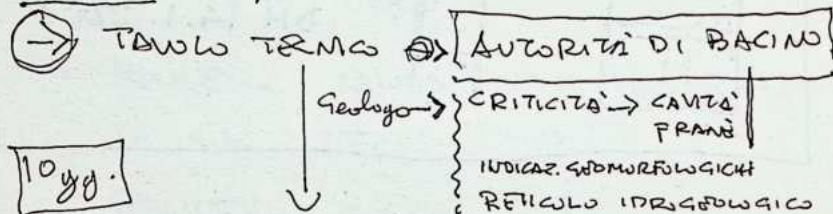 → TAVOLO TECNICO ⊖> AUTORITÀ DI BACINO
Geologo → CRITICITÀ → CAVITÀ
FRANE
10 gg.
INDICAZ. GEOMORFOLOGICHE
RETICOLO IDROGEOLOGICO